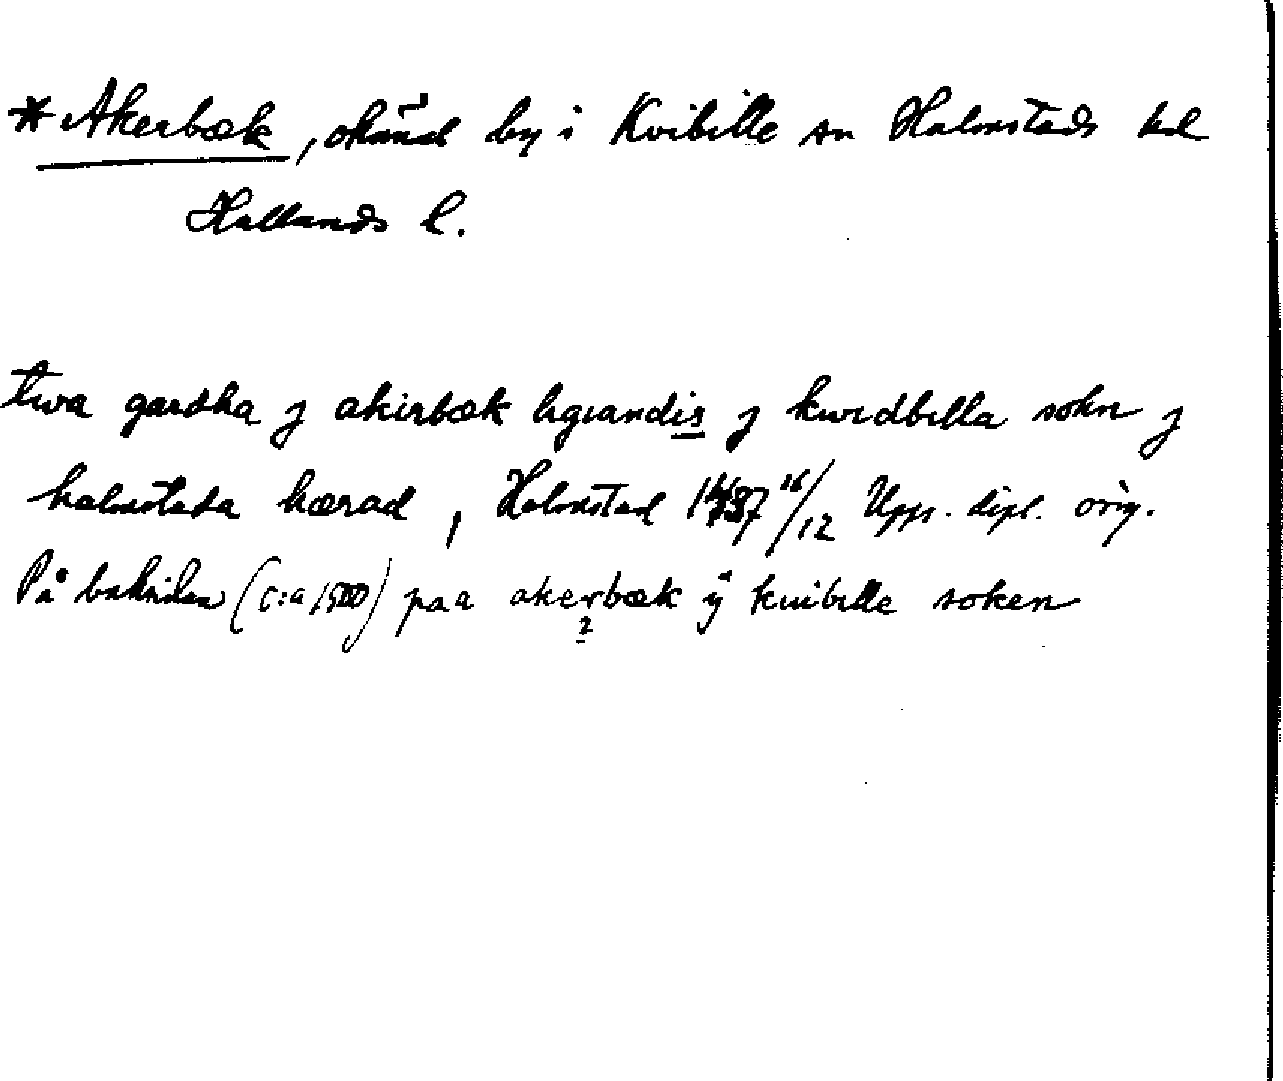 *Akerbæk, okänd by i Kvibille sn Halmstads hd
Hallands l.
twa gardha j akirbæk ligiandis j kwidbilla sokn j
halmstada hærad, Halmstad 16/12 Upps. dipl. orig.
På baksidan (c:a 1500) paa akerbæk ÿ kuibille soken
?